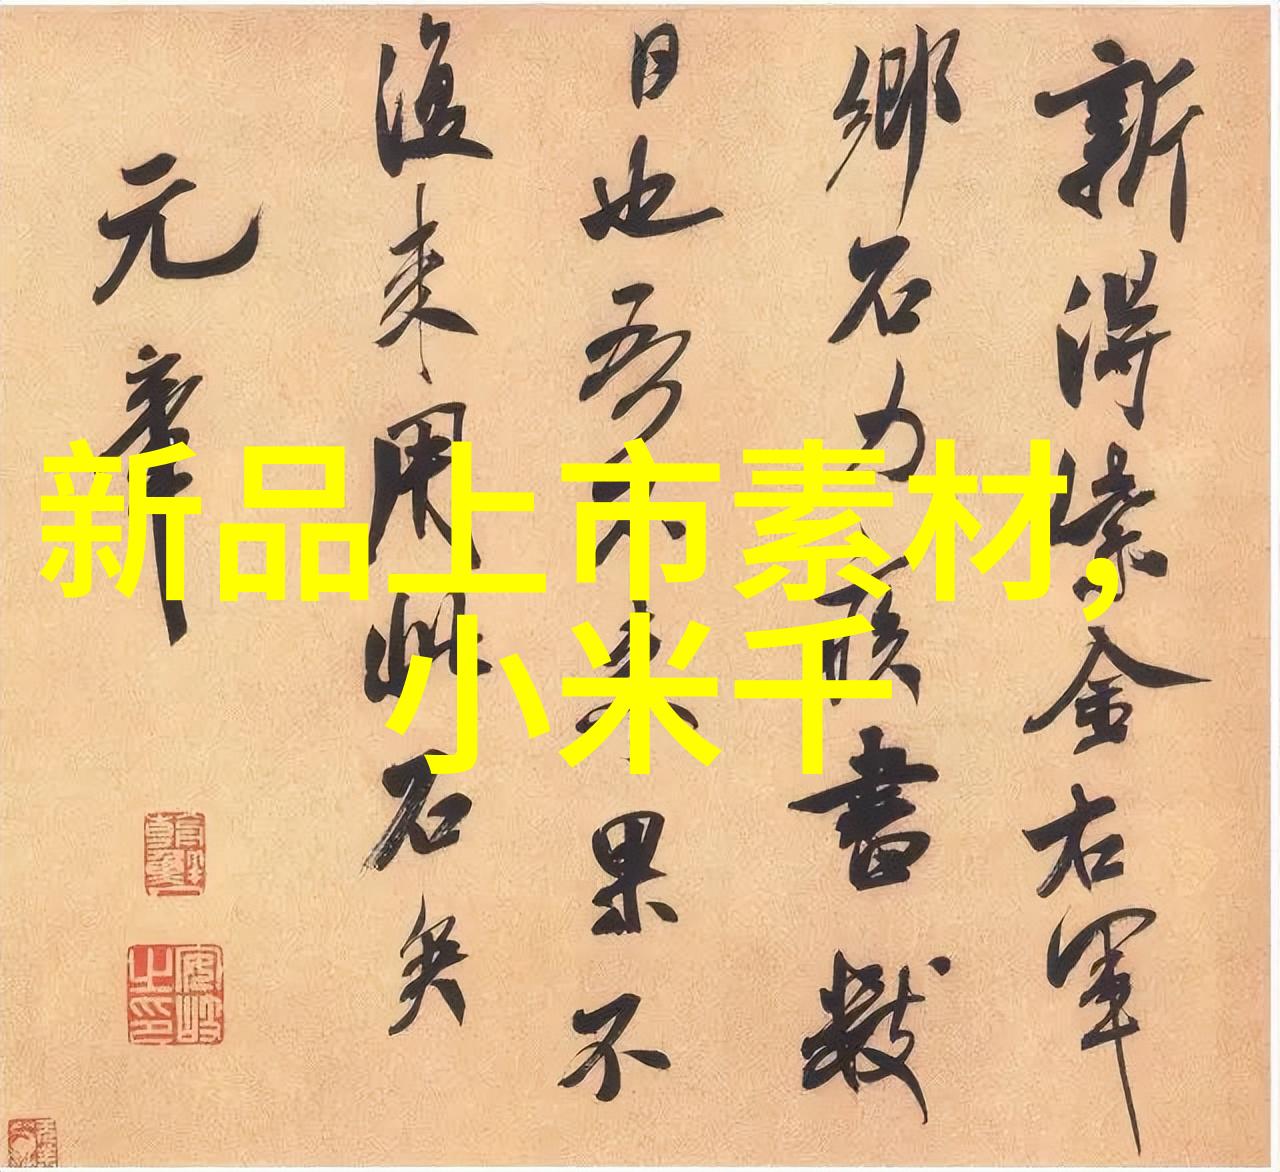 新品上市素材,
小米千
新得紫金右軍
鄉石力疾書數
日也吾不來果不
復來用此石矣
元章